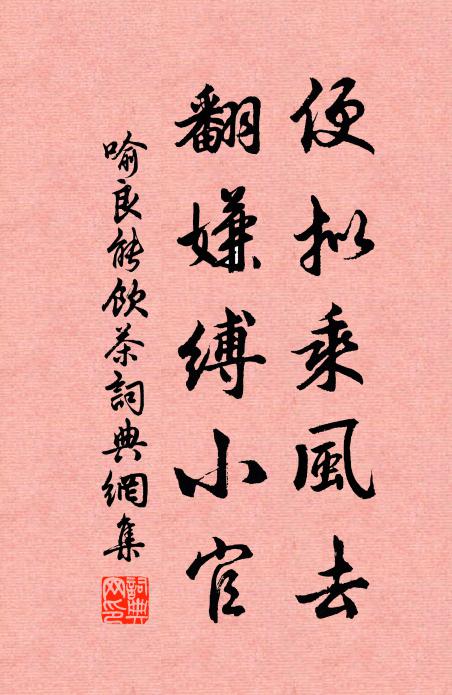 便拟乘風去
翻嫌縛小官
喻良能飲茶詞典網集
詞典网印